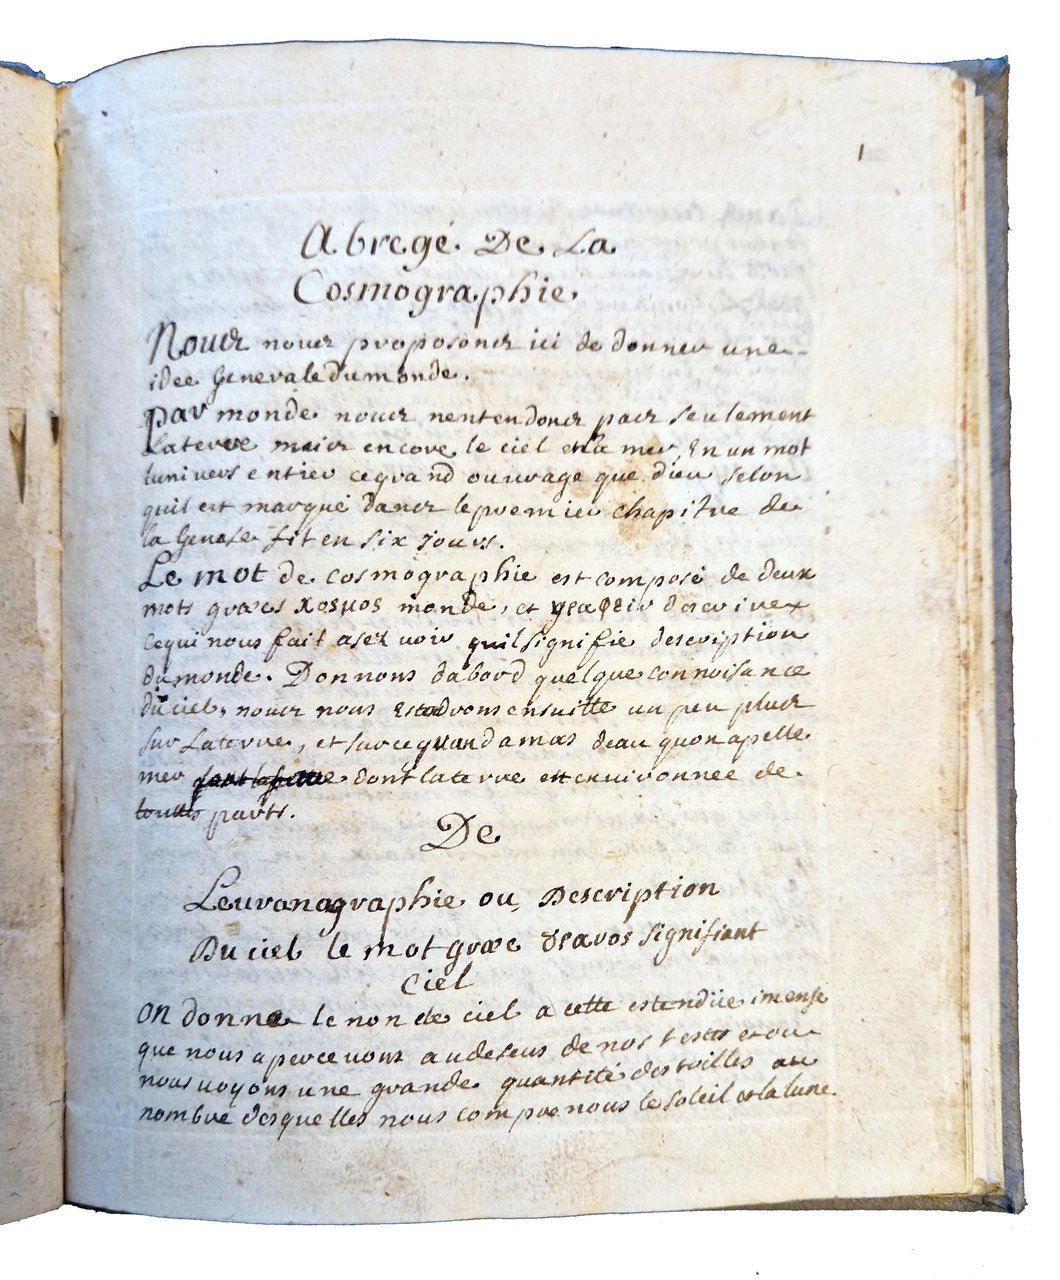 1
Abregé De La
Cosmographie
Nous nous proposons ici de donner une
idee Generale du monde.
Par monde nous nentendons pas seulement
la terre mais encore le ciel et la mer, En un mot
lunivers entier ce grand ouurage que dieu selon
quil est marqué dans le premier chapitre de
la Genese fit en six jours.
Le mot de cosmographie est composé de deux
mots græcs χοσμος monde, et γραφειν descrire
ce qui nous fait asez uoir quil signifie description
du monde. Donnons dabord quelque connoisance
du ciel, nous nous estendrons ensuitte un peu plus
sur La terre, et sur ce quand amas deau quon apelle
mer dont la terre est enuironnee de
touttes parts.
De
Leuranagraphie ou Description
Du ciel le mot græc ȣρανος signifiant
Ciel
On donne le non de ciel a cette estendüe imense
que nous aperceuons au desus de nos testes et ou
nous uoyons une grande quantité destoilles au
nombre desquelles nous comprenons le soleil et la lune.